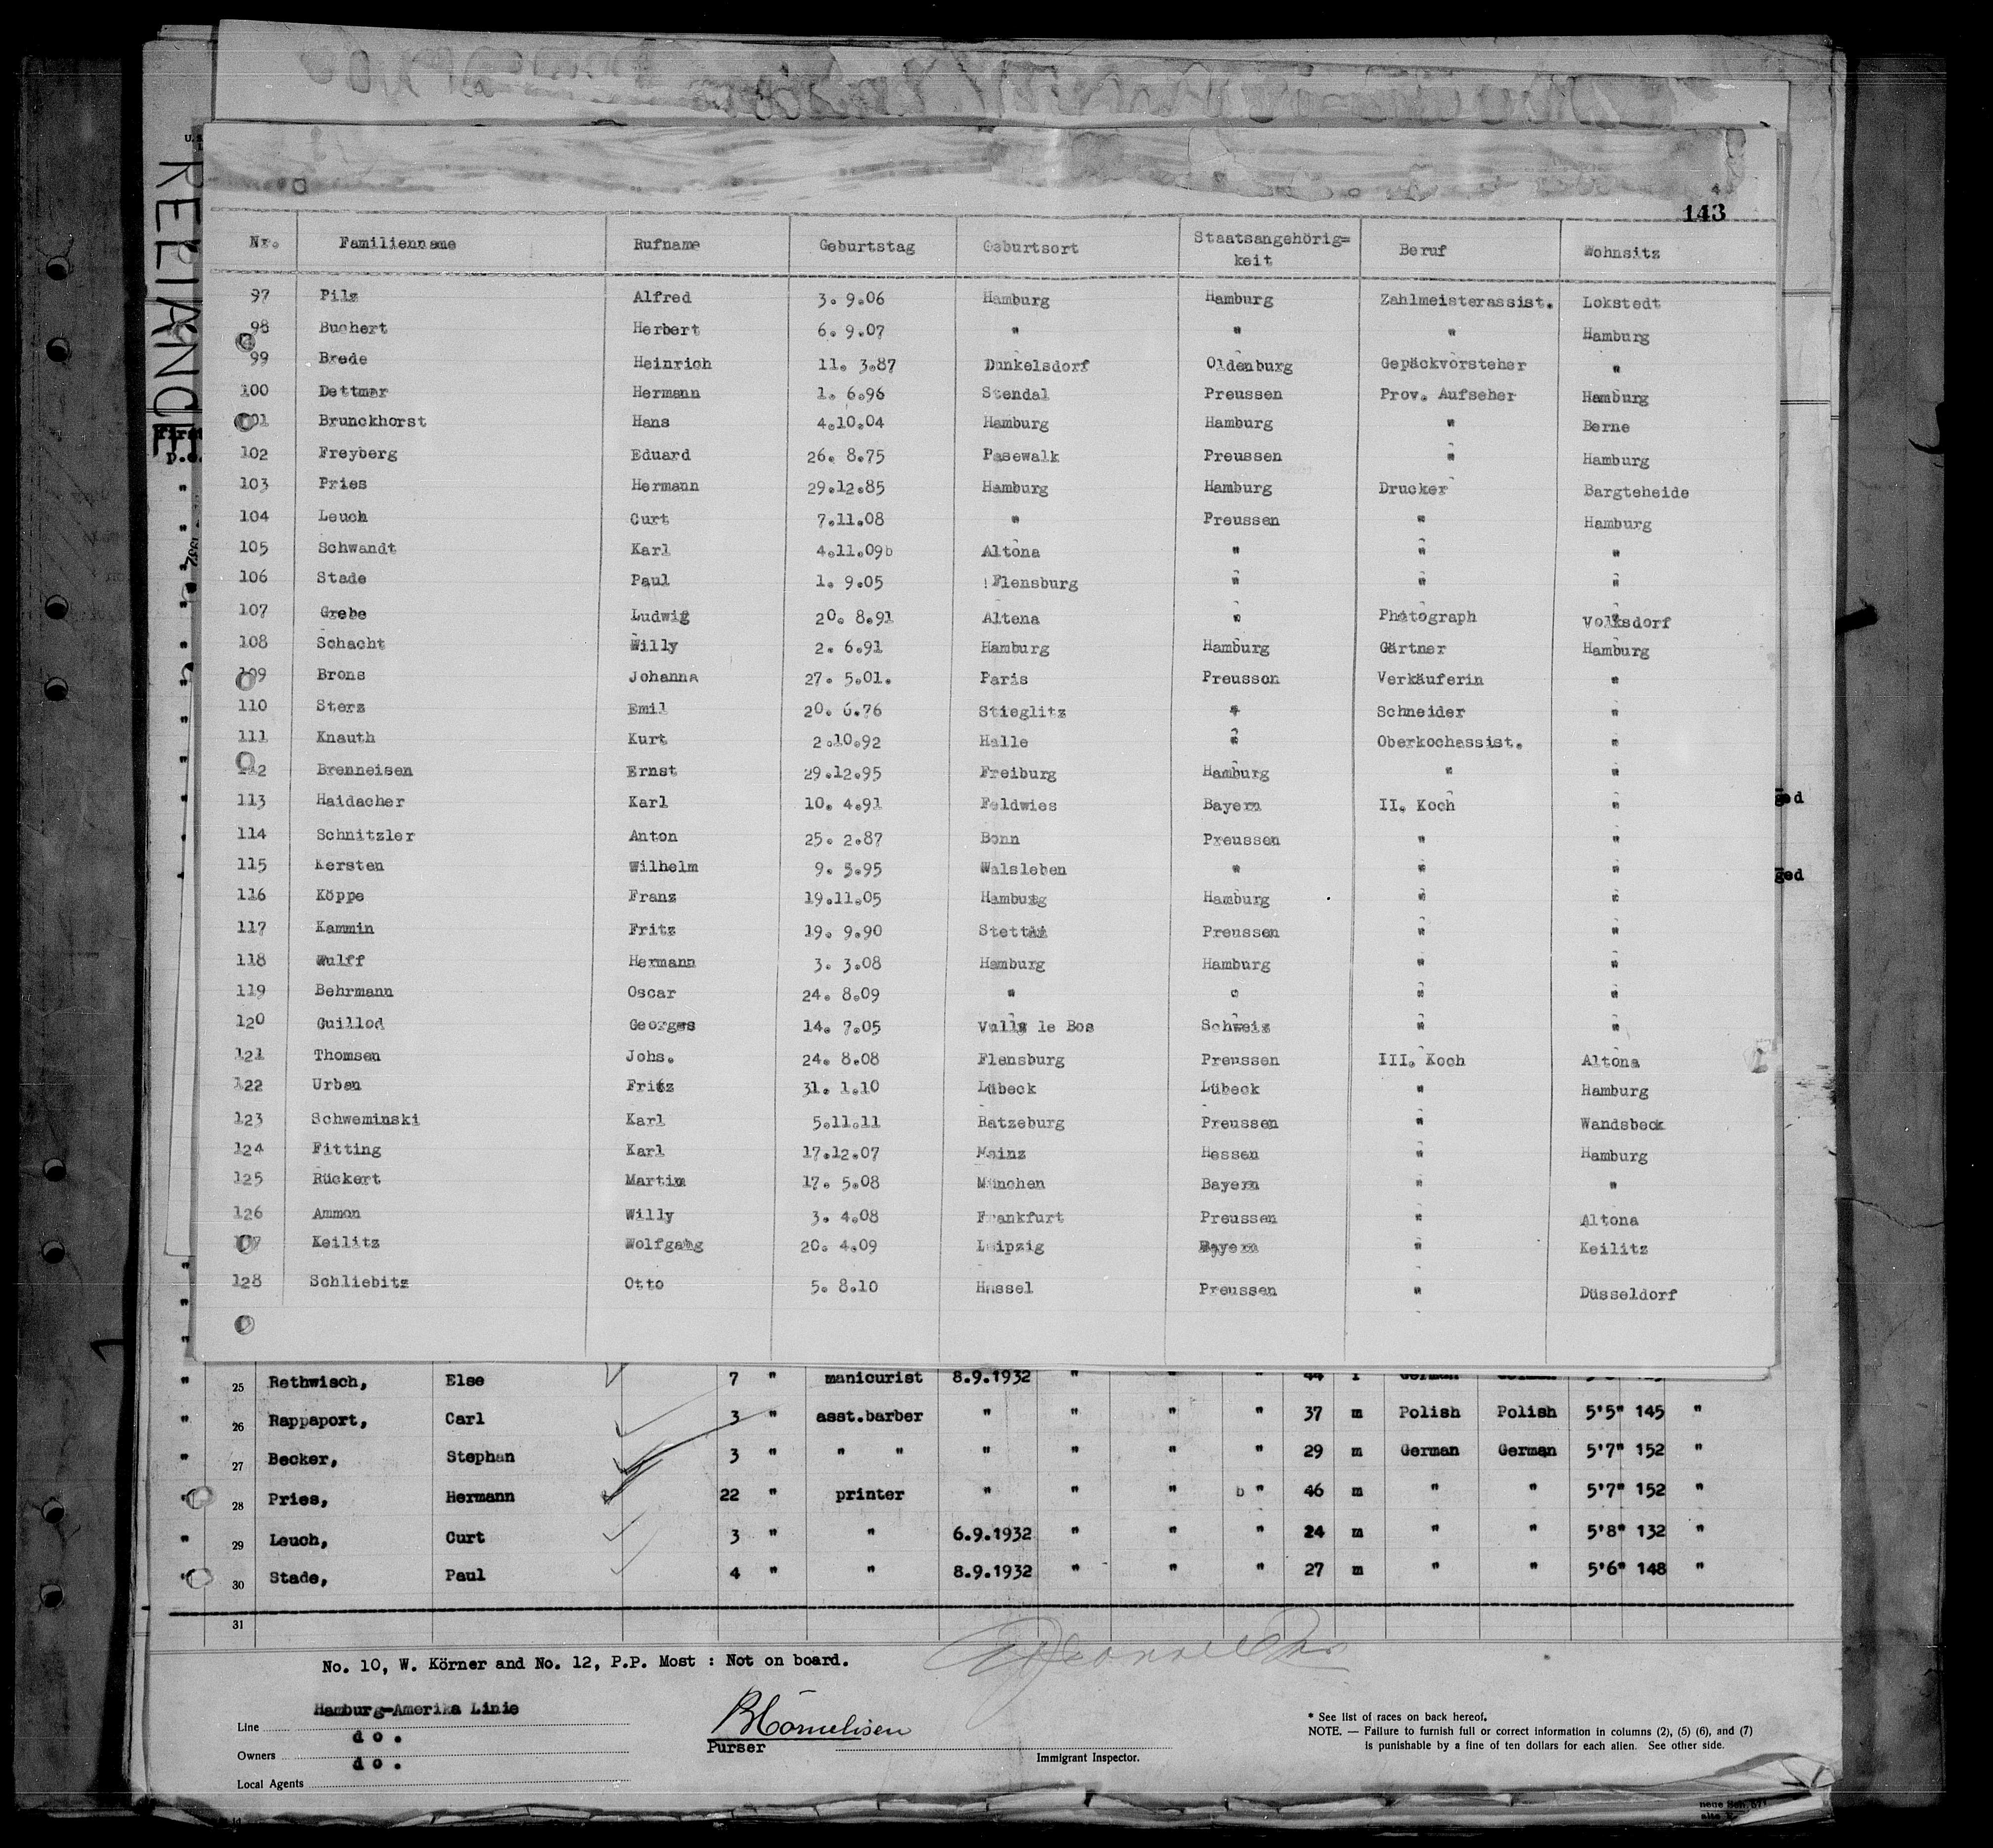 U.S.
RELIANCE
4
143
Nr. Familienname Rufname Geburtstag Geburtsort Staatsangehörig= keit Beruf Wohnsitz
97 Pilz Alfred 3. 9.06 Hamburg Hamburg Zahlmeisterassist. Lokstedt
98 Buchert Herbert 6. 9.07 " " " Hamburg
99 Brede Heinrich 11. 3.87 Dunkelsdorf Oldenburg Gepäckvorsteher "
100 Dettmar Hermann 1. 6.96 Stendal Preussen Prov. Aufseher Hamburg
101 Brunckhorst Hans 4.10.04 Hamburg Hamburg " Berne
102 Freyberg Eduard 26. 8.75 Pasewalk Preussen " Hamburg
103 Pries Hermann 29.12.85 Hamburg Hamburg Drucker Bargteheide
104 Leuch Curt 7.11.08 " Preussen " Hamburg
105 Schwandt Karl 4.11.09b Altona " " "
106 Stade Paul 1. 9.05 Flensburg " " "
107 Grebe Ludwig 20. 8.91 Altena " Photograph Volksdorf
108 Schacht Willy 2. 6.91 Hamburg Hamburg Gärtner Hamburg
109 Brons Johanna 27. 5.01. Paris Preussen Verkäuferin "
110 Sterz Emil 20. 6.76 Stieglitz " Schneider "
111 Knauth Kurt 2.10.92 Halle " Oberkochassist. "
112 Brenneisen Ernst 29.12.95 Freiburg Hamburg " "
113 Haidacher Karl 10. 4.91 Feldwies Bayern II. Koch "
114 Schnitzler Anton 25. 2.87 Bonn Preussen " "
115 Kersten Wilhelm 9. 5.95 Walsleben " " "
116 Köppe Franz 19.11.05 Hamburg Hamburg " "
117 Kammin Fritz 19. 9.90 Stettin Preussen " "
118 Wulff Hermann 3. 3.08 Hamburg Hamburg " "
119 Behrmann Oscar 24. 8.09 " " " "
120 Guillod Georges 14. 7.05 Vully le Bos Schweiz " "
121 Thomsen Johs. 24. 8.08 Flensburg Preussen III. Koch Altona
122 Urban Fritz 31. 1.10 Lübeck Lübeck " Hamburg
123 Schweminski Karl 5.11.11 Ratzeburg Preussen " Wandsbeck
124 Fitting Karl 17.12.07 Mainz Hessen " Hamburg
125 Rückert Martin 17. 5.08 München Bayern " "
126 Ammon Willy 3. 4.08 Frankfurt Preussen " Altona
127 Keilitz Wolfgang 20. 4.09 Leipzig Bayern " Keilitz
128 Schliebitz Otto 5. 8.10 Hassel Preussen " Düsseldorf
" 25 Rethwisch, Else 7 " manicurist 8.9.1932 " " " 44 f German German
" 26 Rappaport, Carl 3 " asst.barber " " " " 37 m Polish Polish 5'5" 145 "
" 27 Becker, Stephan 3 " " " " " " " 29 m German German 5'7" 152 "
" 28 Pries, Hermann 22 " printer " " " b " 46 m " " 5'7" 152 "
" 29 Leuch, Curt 3 " " 6.9.1932 " " " 24 m " " 5'8" 132 "
" 30 Stade, Paul 4 " " 8.9.1932 " " " 27 m " " 5'6" 148 "
31
No. 10, W. Körner and No. 12, P.P. Most : Not on board.
Line Hamburg-Amerika Linie
Owners do.
Local Agents do.
BCornelisen
Purser
Immigrant Inspector.
* See list of races on back hereof.
NOTE. — Failure to furnish full or correct information in columns (2), (5) (6), and (7)
is punishable by a fine of ten dollars for each alien. See other side.